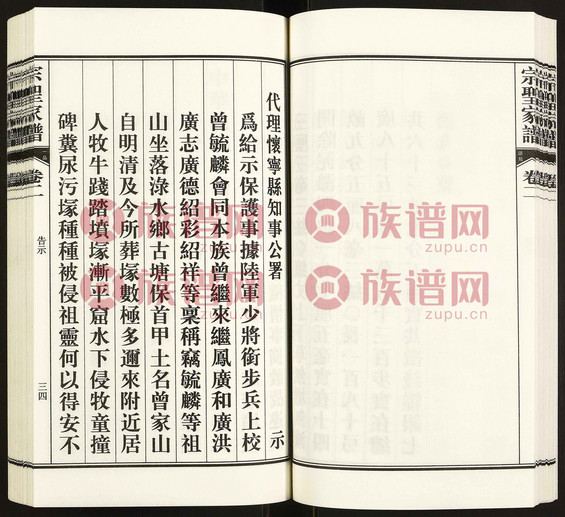 宗聖家譜 卷二
代理懷寧縣知事公署 示
爲給示保護事據陸軍少將銜步兵上校
曾毓麟會同本族曾繼來繼鳳廣和廣洪
廣志廣德紹彩紹祥等稟稱竊毓麟等祖
山坐落淥水鄉古塘保首甲土名曾家山
自明清及今所葬塚數極多邇來附近居
人牧牛踐踏墳塚漸平窟水下侵牧童撞
碑糞尿污塚種種被侵祖靈何以得安不
宗聖家譜 卷二 告示 三四
族谱网
zupu.cn
族谱网
zupu.cn
族谱网
zupu.cn
族谱网
zupu.cn